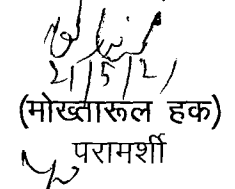 21/5/21
(मोख्तारूल हक)
परामर्शी